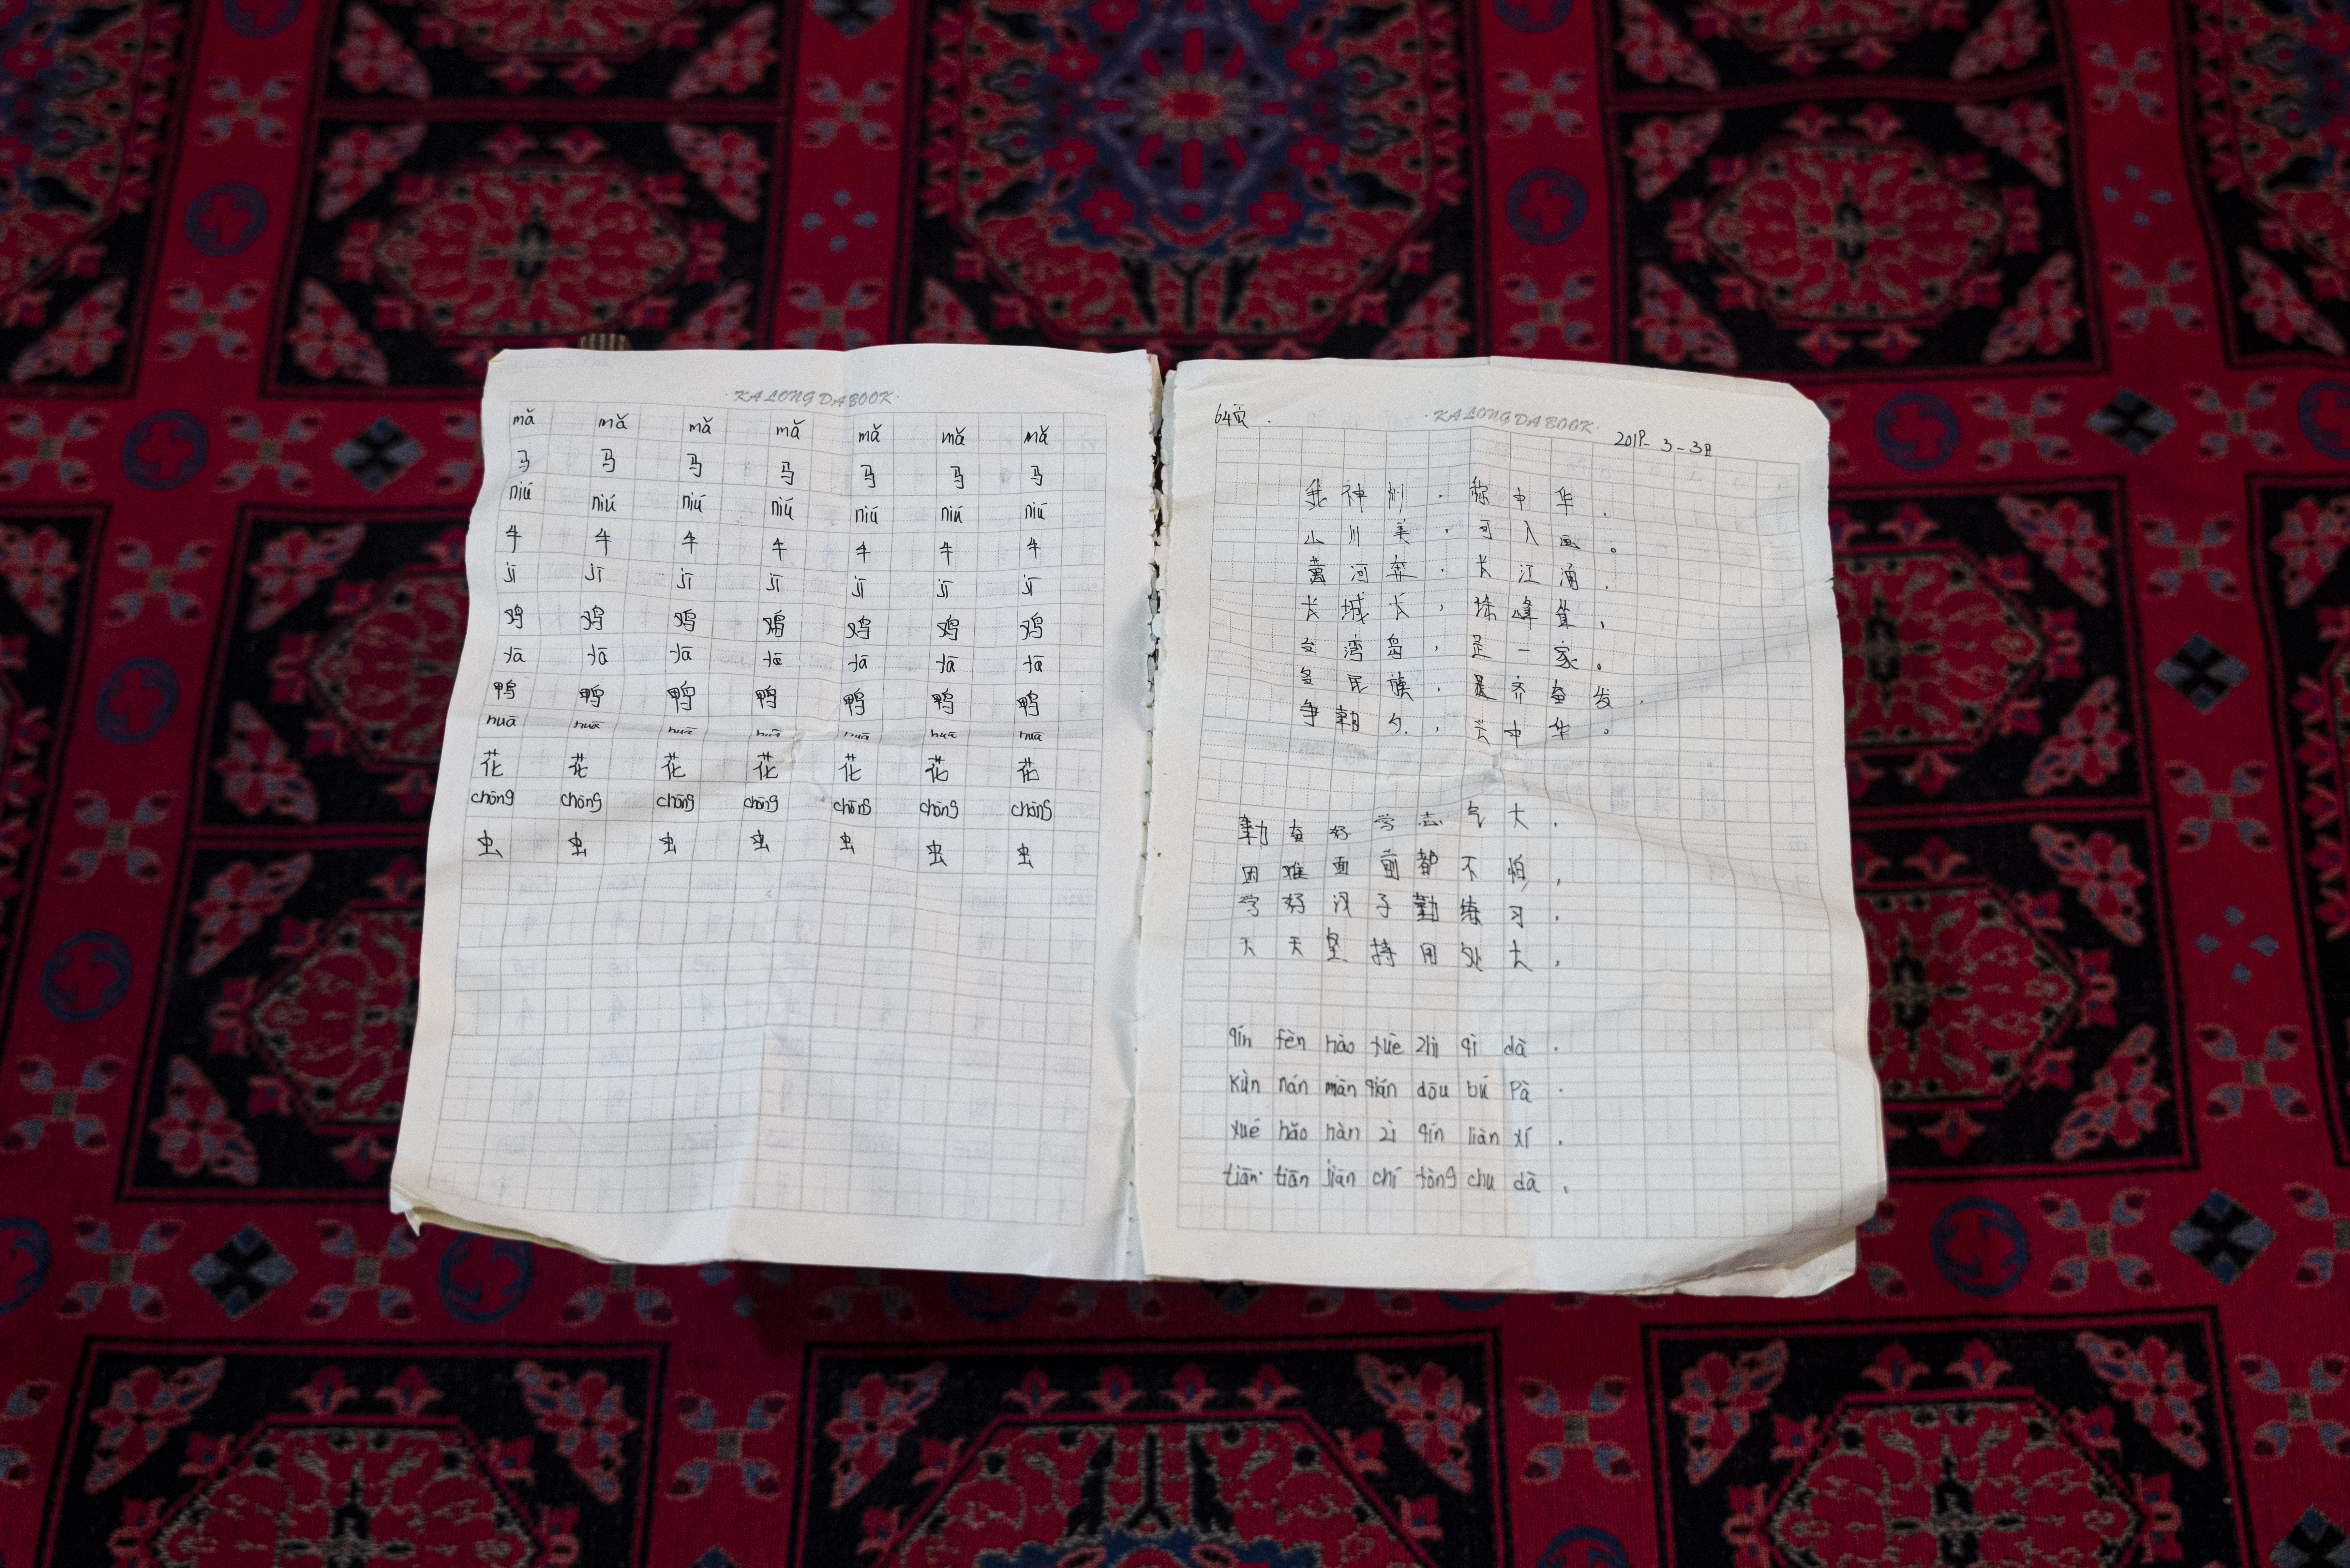 ·KALONGDABOOK·
mǎ mǎ mǎ mǎ mǎ mǎ mǎ
马 马 马 马 马 马 马
niú niú niú niú niú niú niú
牛 牛 牛 牛 牛 牛 牛
jī jī jī jī jī jī jī
鸡 鸡 鸡 鸡 鸡 鸡 鸡
yā yā yā yā yā yā yā
鸭 鸭 鸭 鸭 鸭 鸭 鸭
huā huā huā huā huā huā huā
花 花 花 花 花 花 花
chóng chóng chóng chóng chóng chóng chóng
虫 虫 虫 虫 虫 虫 虫
·KALONGDABOOK·
64页.
3-3日
我神州,称中华.
山川美,可入画。
黄河奔,长江涌.
长城长,珠峰耸,
台湾岛,是一家。
多民族,是齐奋发.
争朝夕,兴中华。
勤奋好学志气大.
困难面前都不怕,
学好汉子勤练习.
天天坚持用处大,
qín fèn hào xuè zhì qì dà.
kùn nán miàn qián dōu bú Pà.
xué hǎo hàn zì qín liàn xí.
tiān tiān jiān chí yòng chu dà,